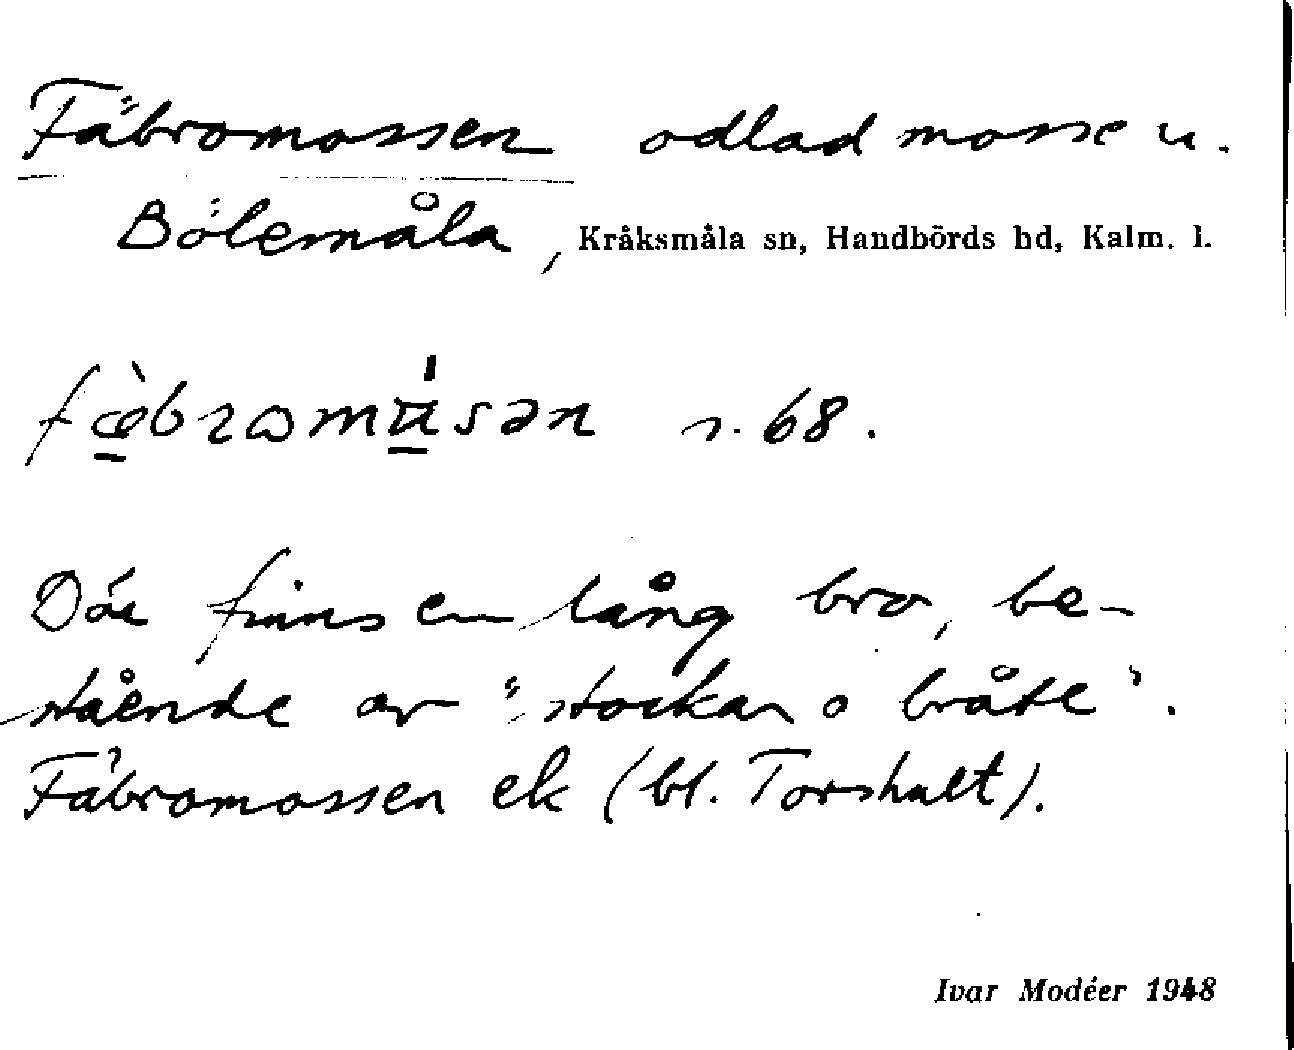 Fäbromossen odlad mosse u.
Bölemåla, Kråksmåla sn, Handbörds hd, Kalm. l.
s. 68.
Där finns en lång bro, be-
stående av "stockar o bråte".
Fäbromossen ek (bl. Torshult).
Ivar Modéer 1948